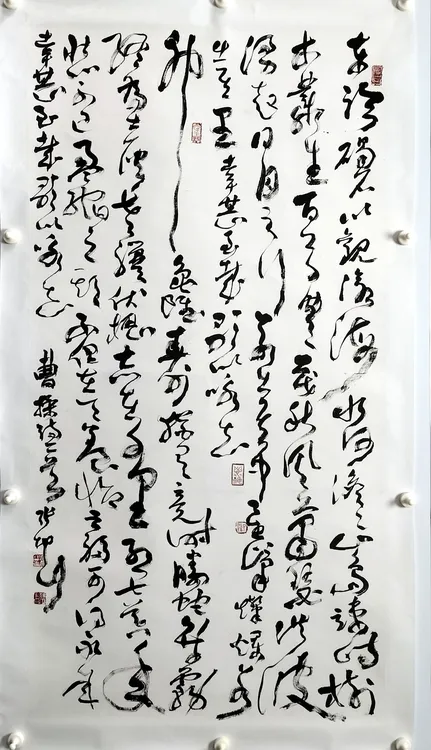 東临碣石以觀滄海水何澹澹山島竦峙樹
木叢生百草豐茂秋風蕭瑟洪波
湧起日月之行若出其中星漢燦爛若
出其里幸甚至哉歌以咏志
神龜雖壽猶有竟时騰蛇乘霧
終為土灰老驥伏櫪志在千里烈士暮年
壯心不已盈縮之期不但在天養怡之福可得永年
幸甚至哉歌以咏志 曹操詩二首